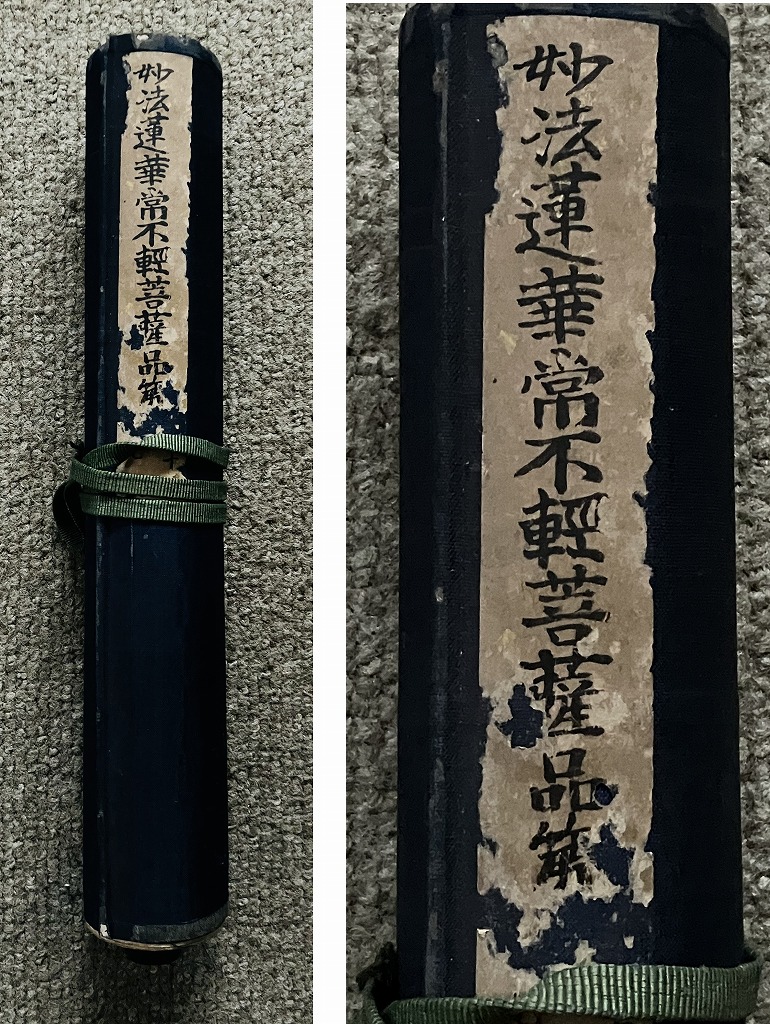 妙法蓮華常不輕菩薩品第
妙法蓮華常不輕菩薩品第